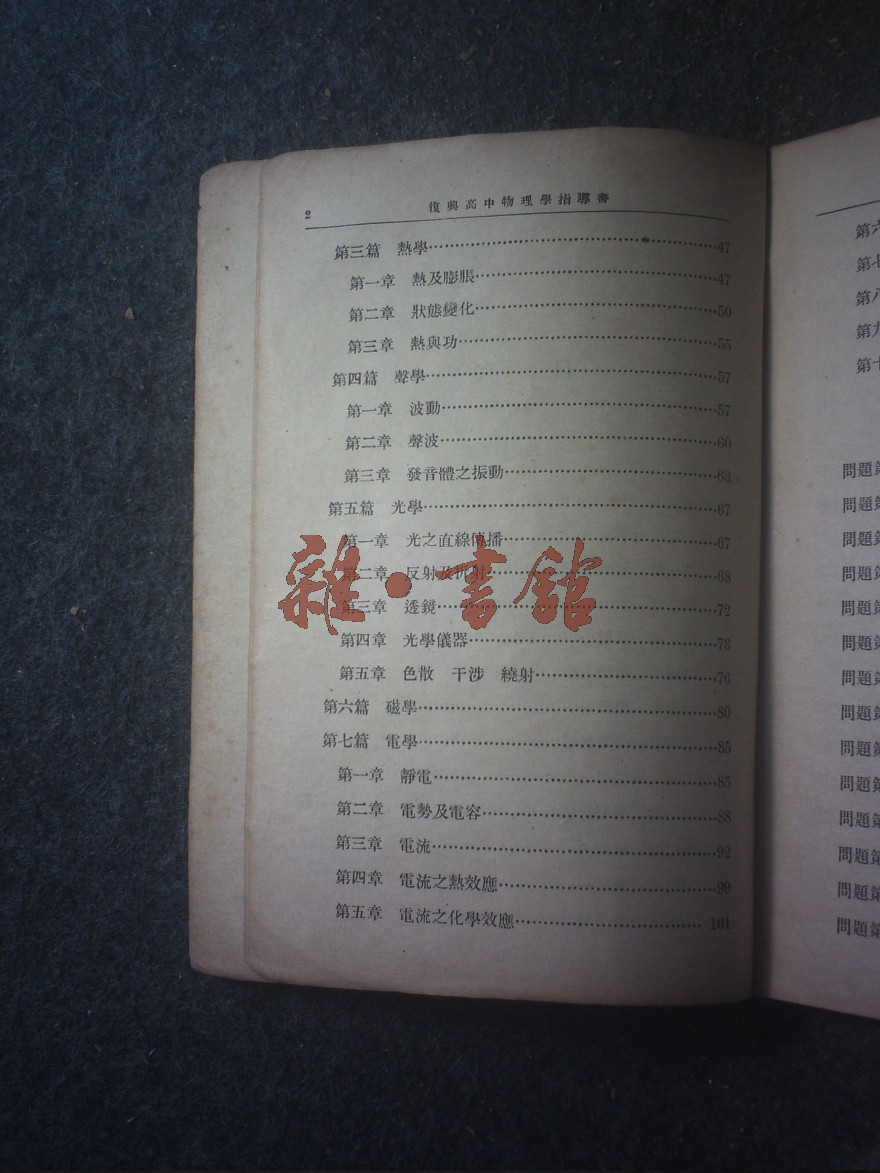 2
復興高中物理學指導書
第三篇 熱學……47
第一章 熱及膨脹……47
第二章 狀態變化……50
第三章 熱與功……55
第四篇 聲學……57
第一章 波動……57
第二章 聲波……60
第三章 發音體之振動……63
第五篇 光學……67
第一章 光之直線傳播……67
第二章 反射及折射……68
第三章 透鏡……72
第四章 光學儀器……73
第五章 色散 干涉 繞射……76
第六篇 磁學……80
第七篇 電學……85
第一章 靜電……85
第二章 電勢及電容……88
第三章 電流……92
第四章 電流之熱效應……99
第五章 電流之化學效應……101
雜·書館
第六
第七
第八
第九
第十
問題第
問題第
問題第
問題第
問題第
問題第
問題第
問題第
問題第
問題第
問題第
問題第
問題第
問題第